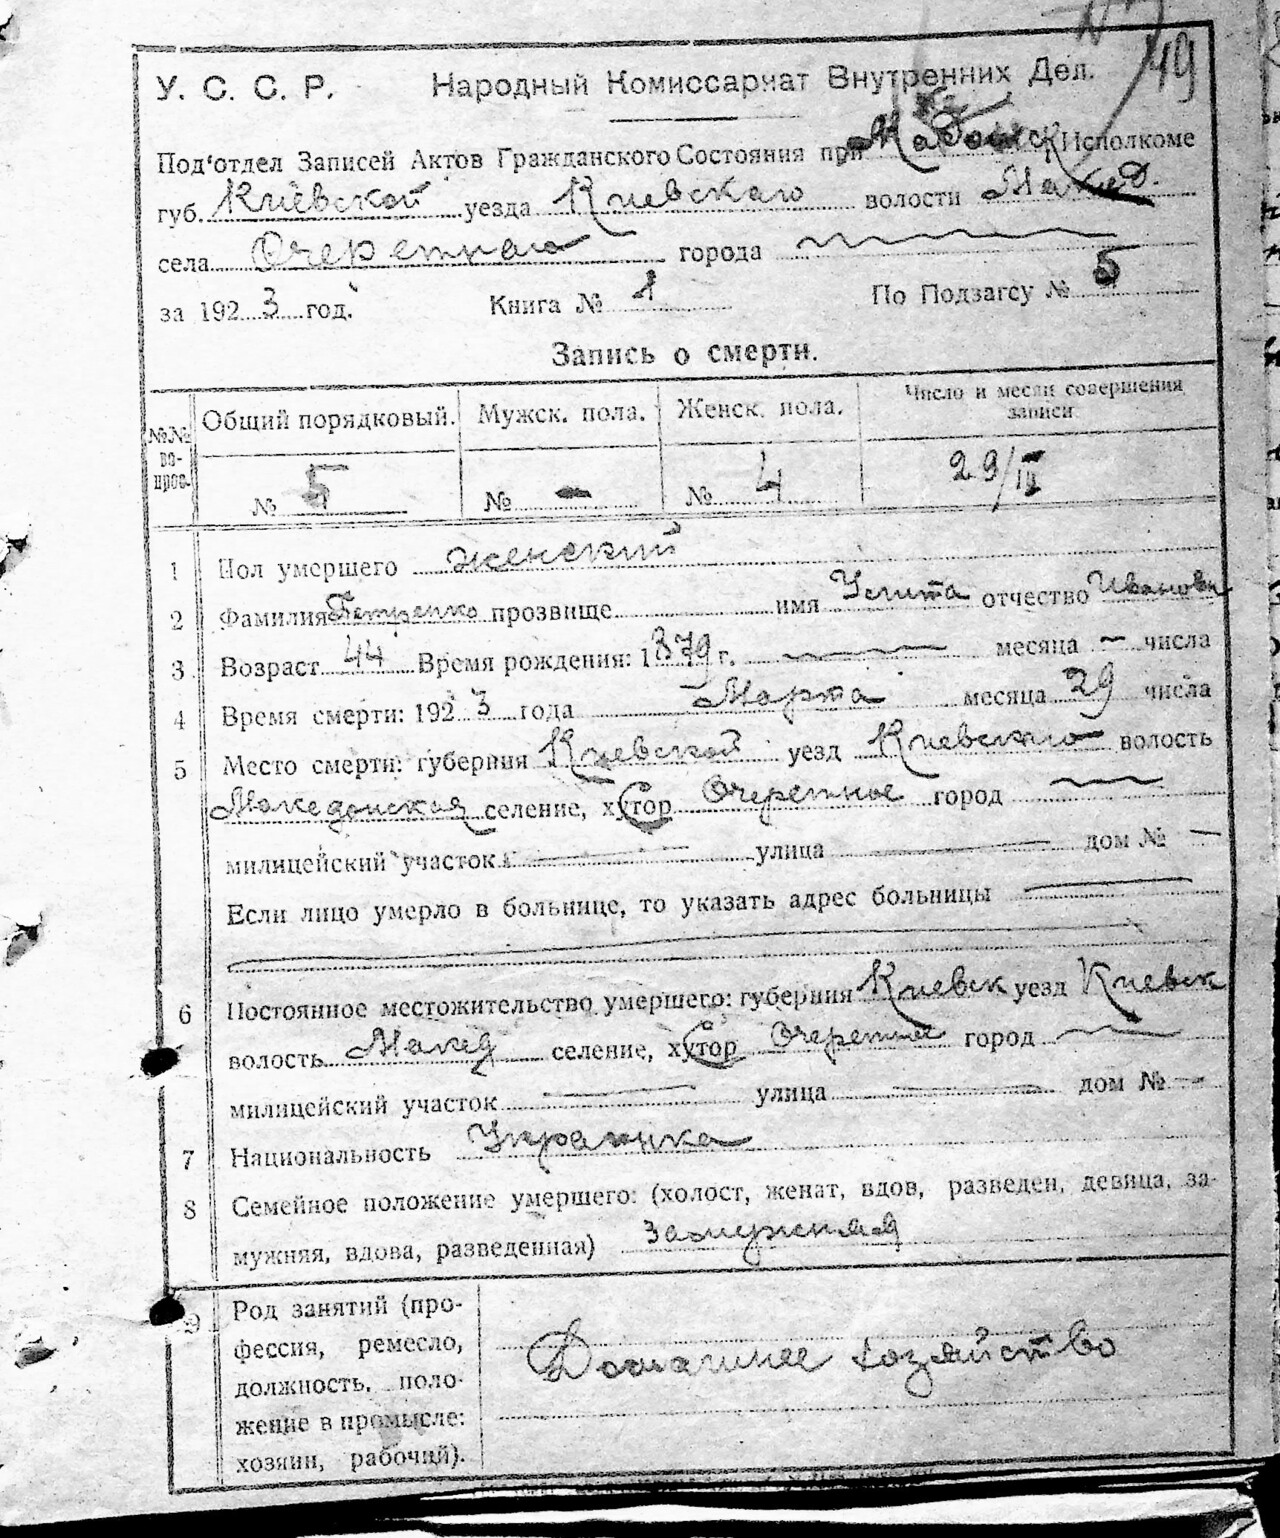 49
У. С. С. Р. Народный Комиссариат Внутренних Дел.
Под'отдел Записей Актов Гражданского Состояния при Исполкоме
губ. Киевской уезда Киевскаго волости Макед.
села Очеретнаго города
за 1923 год. Книга № 1 По Подзагсу № 5
Запись о смерти.
№№ вопрос. Общий порядковый. Мужск. пола. Женск. пола. Число и месяц совершения записи
№ 5 № - № 4 29/III
1 Пол умершего женский
2 Фамилия Петренко прозвище имя Улита отчество Иванова
3 Возраст 44 Время рождения: 1879 г. месяца — числа
4 Время смерти: 1923 года Марта месяца 29 числа
5 Место смерти: губерния Киевской уезд Киевскаго волость
Македонская селение, хутор Очеретное город
милицейский участок улица дом № —
Если лицо умерло в больнице, то указать адрес больницы
6 Постоянное местожительство умершего: губерния Киевск уезд Киевск
волость Макед селение, хутор Очеретное город
милицейский участок улица дом № —
7 Национальность Украинка
8 Семейное положение умершего: (холост, женат, вдов, разведен, девица, за-
мужняя, вдова, разведенная) замужняя
9 Род занятий (про-
фессия, ремесло,
должность, поло-
жение в промысле:
хозяин, рабочий).
Домашнее хозяйство